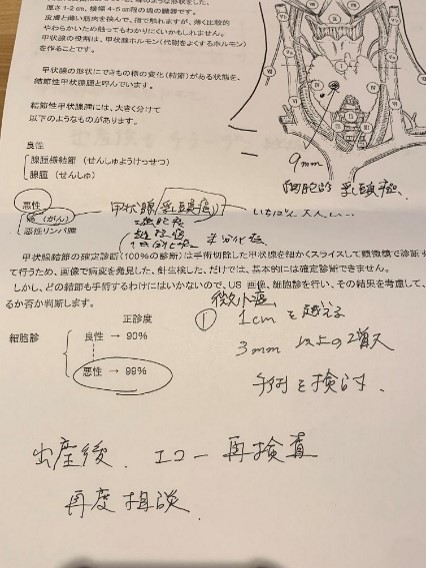 厚さ 1-2 cm、横幅 4-5 cm程の場の臓器です。
皮膚と薄い筋肉を挟んで、指で触れますが、薄く比較的
やわらかいため触ってもわかりにくいかもしれません。
甲状腺の役割は、甲状腺ホルモン(代謝をよくするホルモン)
を作ることです。
甲状腺の形状にできもの様の変化(結節)がある状態を、
結節性甲状腺腫と呼んでいます。
結節性甲状腺腫には、大きく分けて
以下のようなものがあります。
良性
腺腫様結節 (せんしゅようけっせつ)
腺腫 (せんしゅ)
悪性
癌 (がん)
悪性リンパ腫
9mm
乳頭癌
甲状腺 乳頭癌
濾胞癌
髄様癌
未分化癌
いちばん 大人しい
甲状腺結節の確定診断(100%の診断)は手術切除した甲状腺を細かくスライスして顕微鏡で診断す
て行うため、画像で病変を発見した、針生検した、だけでは、基本的には確定診断できません。
しかし、どの結節も手術するわけにはいかないので、US 画像、細胞診を行い、その結果を考慮して、
るか否か判断します。
正診度
細胞診
良性 → 90%
悪性 → 99%
微小癌
① 1cm を越える
3mm 以上の増大
手術を検討.
出産後. エコー再検査
再度相談.